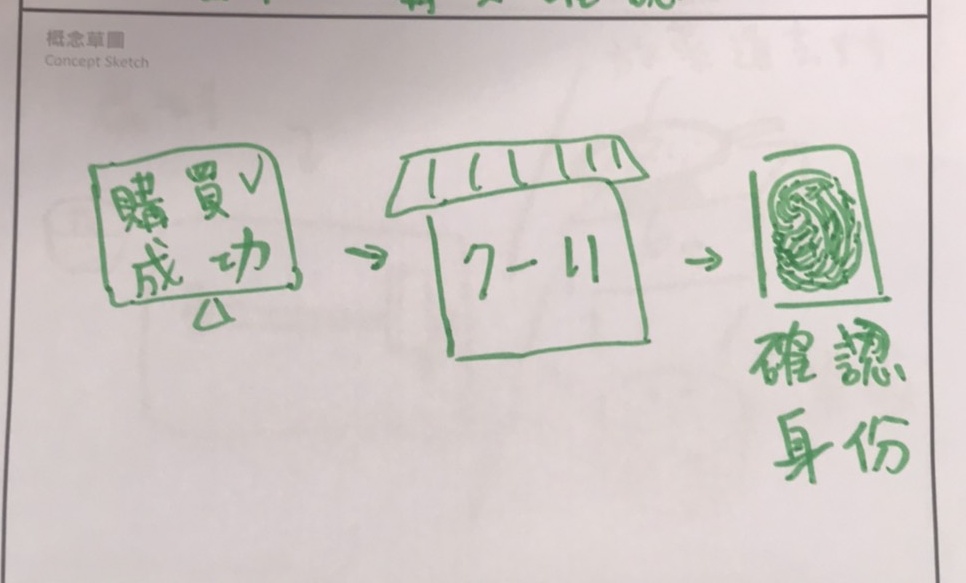 概念草圖
Concept Sketch
購買✓
成功
→
7-11
→
確認
身份